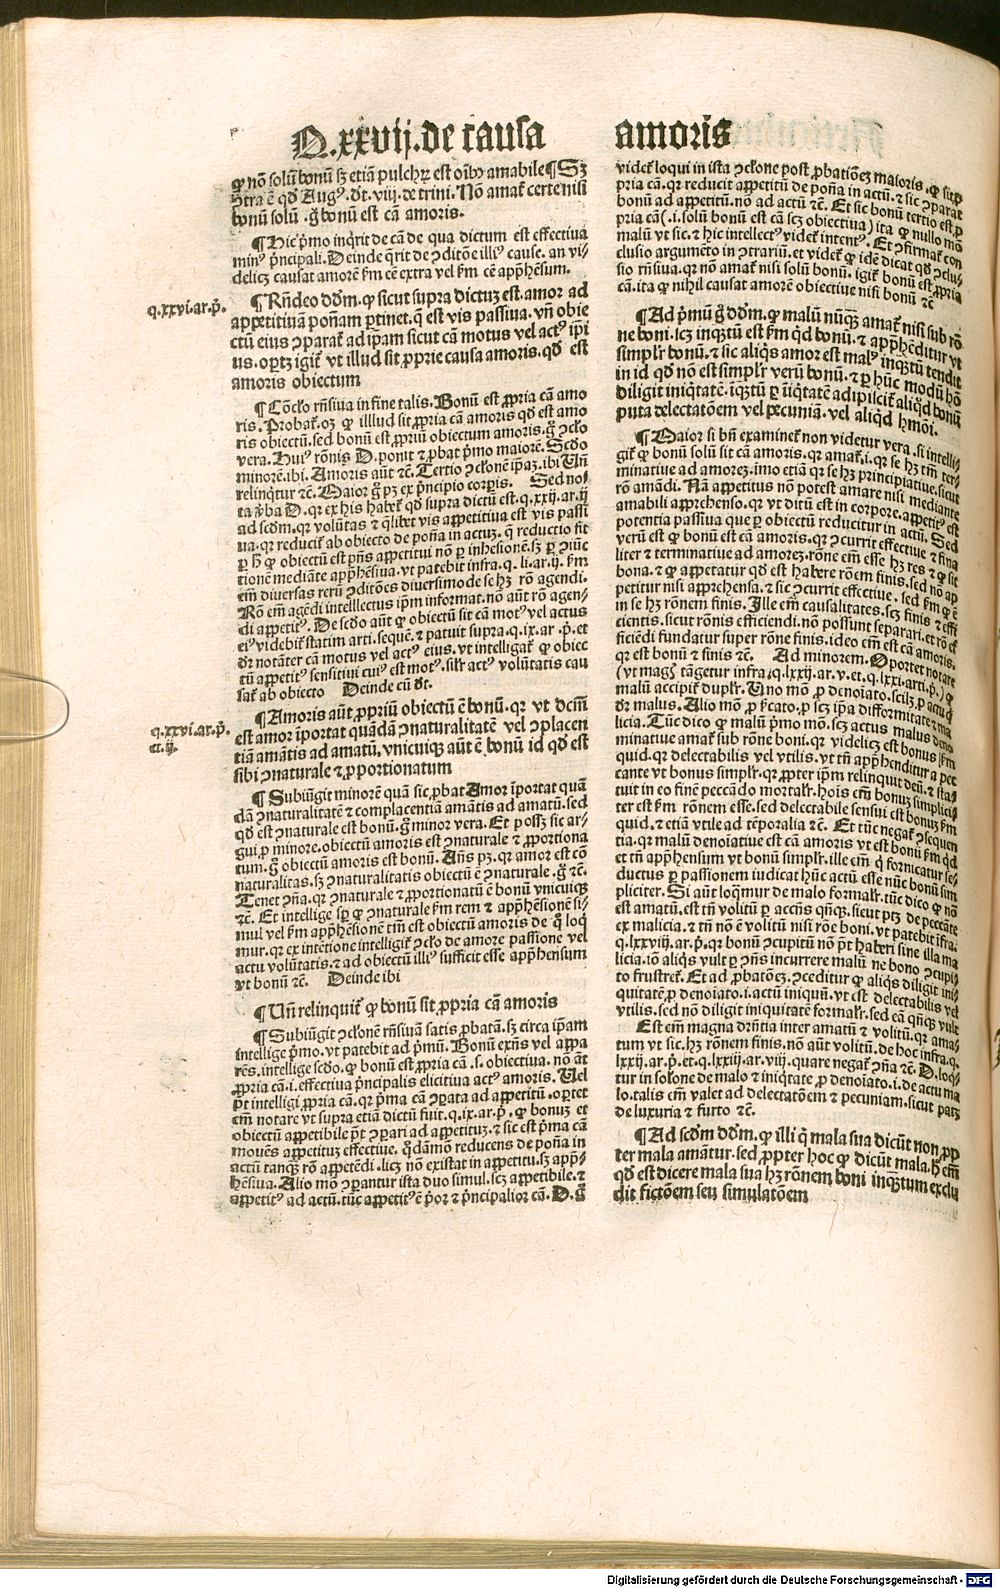 Q.xxvij.de causa amoris
ꝙ nō solū bonū sꝫ etiā pulchꝝ est oībꝰ amabile ¶ Sꝫ
ↄtra ē qđ Augꝰ. dt̄. viij. de trini. Nō amat̄ certe nisi
bonū solū .g̊ bonū est cā amoris.
¶ Hic p̄mo inq̄rit de cā de qua dictum est effectiua
minꝰ p̄ncipali. Deinde q̄rit de ↄditōe illiꝰ cause. an vi-
delicꝫ causat amorē ẜm eē extra vel ẜm eē app̄hēsum.
q.xxvi.ar.p̄.
¶ Rn̄deo dōm. ꝙ sicut supra dictuꝫ est. amor ad
appetitiuā potn̄am ꝑtinet. q̄ est vis passiua. vn̄ obie
ctū eius ↄparat̄ ad ip̄am sicut cā motus vel actꝰ ip̄i
us. oꝑtꝫ igit̄ vt illud sit ꝓprie causa amoris. qđ est
amoris obiectum
¶ Cōclo rn̄siua in fine talis. Bonū est ꝓpria cā amo
ris. Probat̄. oꝫ ꝙ illlud sit ꝓpria cā amoris qđ est amo
ris obiectū. sed bonū est ꝓpriū obiectum amoris. g̊ ↄclo
vera. Huiꝰ rōnis D. ponit ⁊ ꝓbat p̄mo maiorē. Scđo
minorē. ibi. Amoris aūt ⁊c̄. Tertio ↄclonē ip̄aꝫ. ibi Un̄
relinq̄tur ⁊c̄. Maior g̊ pꝫ ex p̄ncipio corꝑis. Sed no-
ta ꝟba D. qꝛ ex his habet̄ qđ supra dictū est. q.xxij.ar.ij
ad scđm. qꝛ volūtas ⁊ q̄libet vis appetitiua est vis passi
ua. qꝛ reducit̄ ab obiecto de potn̄a in actuꝫ. q̄ reductio fit
ꝑ h̄ ꝙ obiectū est pn̄s appetitui nō ꝑ inhesionē. sꝫ ꝑ ↄiūc
tionē mediāte app̄hēsiua. vt patebit infra. q. li.ar.ij. ẜm
em̄ diuersas rerū ↄditōes diuersimode se hꝫ rō agendi.
Rō em̄ agēdi intellectus ip̄m informat. nō aūt rō agen-
di appetitꝰ. De scđo aūt ꝙ obiectū sit cā motꝰ vel actus
eiꝰ videbit̄ statim arti. sequē. ⁊ patuit supra. q. ix. ar. p̄. et
dr̄ notāter cā motus vel actꝰ eius. vt intelligat̄ ꝙ obiec
tū appetitꝰ sensitiui cuiꝰ est motꝰ. silr̄ actꝰ volūtatis cau
sat̄ ab obiecto Deinde cū dt̄.
q.xxvi.ar.p̄.
et.ij.
¶ Amoris aūt ꝓpriū obiectū ē bonū. qꝛ vt dcm̄
est amor īportat quādā ↄnaturalitatē vel ↄplacen
tiā amātis ad amatū. vnicuiqꝫ aūt ē bonū id qđ est
sibi ↄnaturale ⁊ ꝓportionatum
¶ Subiūgit minorē quā sic ꝓbat Amor īportat quā
dā ↄnaturalitatē ⁊ complacentiā amātis ad amatū. sed
qđ est ↄnaturale est bonū. g̊ minor vera. Et possꝫ sic ar-
gui ꝓ minore. obiectū amoris est ↄnaturale ⁊ ꝓportiona
tum. g̊ obiectū amoris est bonū. Ans̄ pꝫ. qꝛ amor est cō
naturalitas. sꝫ ↄnaturalitatis obiectū ē ↄnaturale. g̊ ⁊c̄.
Tenet ↄn̄a. qꝛ ↄnaturale ⁊ ꝓportionatū ē bonū vnicuiqꝫ
⁊c̄. Et intellige sꝑ ꝙ ↄnaturale ẜm rem ⁊ app̄hēsionē si-
mul vel ẜm app̄hēsionē tm̄ est obiectū amoris de q̊ loq̄
mur. qꝛ ex intētione intelligit̄ ↄclo de amore passione vel
actu volūtatis. ⁊ ad obiectū illiꝰ sufficit esse app̄hensum
vt bonū ⁊c̄. Deinde ibi
¶ Un̄ relinquit̄ ꝙ bonū sit ꝓpria cā amoris
¶ Subiūgit ↄclonē rn̄siuā satis ꝓbatā. sꝫ circa ip̄am
intellige p̄mo. vt patebit ad p̄mū. Bonū exn̄s vel appa
rēs. intellige scđo. ꝙ bonū est ꝓpria cā .s. obiectiua. nō āt
ꝓpria cā .i. effectiua p̄ncipalis elicitiua actꝰ amoris. Uel
pt̄ intelligi ꝓpria cā. qꝛ p̄ma cā ↄꝑata ad appetitū. oꝑtet
em̄ notare vt supra etiā dictū fuit. q.ix.ar.p̄. ꝙ bonuꝫ et
obiectū appetibile pt̄ ↄꝑari ad appetituꝫ. ⁊ sic est p̄ma cā
mouēs appetituꝫ effectiue. q̄dāmō reducens de potn̄a in
actū tanqꝫ rō appetēdi. licꝫ nō existat in appetitu. sꝫ app̄-
hēsiua. Alio mō ↄꝑantur ista duo simul. scꝫ appetibile. ⁊
appetitꝰ ad actū. tūc appetitꝰ ē p̄or ⁊ p̄ncipalior cā. D. g̊
videt̄ loqui in ista ↄclone post ꝓbationēꝫ maioris. ꝙ sit ꝓ
pria cā. qꝛ reducit appetitū de potn̄a in actū. ⁊ sic ↄparat
bonū ad appetitū. nō ad actū ⁊c̄. Et sic bonū tertio est ꝓ
pria cā (.i. solū bonū est cā scꝫ obiectiua) ita ꝙ nullo mō
malū vt sic. ⁊ hic intellectꝰ videt̄ intentꝰ. Et ↄfirmat̄ con
clusio argumēto in ↄtrariū. et videt̄ ꝙ idē dicat qđ ↄclu-
sio rn̄siua. qꝛ nō amat̄ nisi solū bonū. igit̄ bonū est ꝓpria
cā. ita ꝙ nihil causat amorē obiectiue nisi bonū ⁊c̄
¶ Ad p̄mū g̊ dōm. ꝙ malū nūqꝫ amat̄ nisi sub rō-
ne boni. scꝫ inqꝫtū est ẜm qđ bonū. ⁊ app̄hēditur vt
simplr̄ bonū. ⁊ sic aliqs amor est malꝰ inqꝫtū tendit
in id qđ nō est simplr̄ verū bonū. ⁊ ꝑ hūc modū hō
diligit iniq̄tatē. inqꝫtū ꝑ iniq̄tatē adipiscit̄ aliqđ bonū
puta delectatōem vel pecuniā. vel aliqđ hmōi.
¶ Maior si bn̄ examinet̄ non videtur vera. si intelli-
git̄ ꝙ bonū solū sit cā amoris. qꝛ amat̄. i. qꝛ se hꝫ tm̄ ter-
minatiue ad amoreꝫ. imo etiā qꝛ se hꝫ principiatiue. sicut
rō amādi. Nā appetitus nō potest amare nisi mediante
amabili apprehenso. qꝛ vt ditū est in corpore. appetitꝰ est
potentia passiua que ꝑ obiectū reducitur in actū. Sed
verū est ꝙ bonū est cā amoris. qꝛ ↄcurrit effectiue ⁊ fina
liter ⁊ terminatiue ad amoreꝫ. rōne em̄ esse hꝫ res ⁊ ꝙ sit
bona. ⁊ ꝙ appetatur qđ est habere rōem finis. sed nō ap
petitur nisi apprehensa. ⁊ sic ↄcurrit effectiue. sed ẜm ꝙ ē
in se hꝫ rōnem finis. Ille em̄ causalitates. scꝫ finis ⁊ effi
cientis. sicut rōnis efficiendi. nō possunt separari. et rō ef
ficiēdi fundatur super rōne finis. ideo em̄ est cā amoris.
qꝛ est bonū ⁊ finis ⁊c̄. Ad minorem. Oportet notare
(vt magꝫ tāgetur infra. q.lxxij.ar.v.et.q.lxxi.arti.p̄.) ꝙ
malū accipit̄ duplr̄. Uno mō ꝓ denoīato. scilꝫ ꝓ actu q̄
dr̄ malus. Alio mō ꝓ p̄dicato. ꝓ scꝫ ip̄a difformitate ⁊ ma
licia. Tūc dico ꝙ malū p̄mo mō. scꝫ actus malus deno
minatiue amat̄ sub rōne boni. qꝛ videlicꝫ est bonus ẜm
quid. qꝛ delectabilis vel vtilis. vt tn̄ app̄henditur a pec
cante vt bonus simplr̄. qꝛ ꝓpter ip̄m relinquit deū. ⁊ sta-
tuit in eo finē peccādo mortalr̄. hoīs em̄ bonuꝫ simplici
ter est ẜm rōnem esse. sed delectabile sensui est bonuꝫ ẜm
quid. ⁊ etiā vtile ad tēporalia ⁊c̄. Et tūc negat̄ ↄsequen
tia. qꝛ malū denoīatiue est cā amoris vt est bonū ẜm qđ
et tn̄ app̄hensum vt bonū simplr̄. ille em̄ q̄ fornicatur se-
ductus ꝑ passionem iudicat hūc actū esse nūc bonū sim
pliciter. Si aūt loqm̄ur de malo formalr̄. tūc dico ꝙ nō
est amatū. est tn̄ volitū ꝑ accn̄s qn̄qꝫ. sicut ptꝫ de peccāte
ex malicia. ⁊ tn̄ nō ē volitū nisi rōe boni. vt patebit īfra.
q.lxxviij.ar.p̄. qꝛ bonū ↄcupitū nō pt̄ haberi sine illa ma
licia. iō aliqs vult ꝑ ↄn̄s incurrere malū ne bono ↄcupi-
to frustret̄. Et ad ꝓbatōeꝫ. ↄceditur ꝙ aliqs diligit ini-
quitatē. ꝓ denoīato .i. actū iniquū. vt est delectabilis vel
vtilis. sed nō diligit iniquitatē formalr̄. sed eā qn̄qꝫ vult
Est em̄ magna drn̄tia inter amatū ⁊ volitū. qꝛ ama-
tum vt sic. hꝫ rōnem finis. nō aūt volitū. de hoc infra. q.
lxxij.ar.p̄.et.q.lxxiij.ar.viij. quare negat̄ ↄn̄a ⁊c̄. D. loq̄-
tur in solone de malo ⁊ iniq̄tate ꝓ denoīato .i. de actu ma
lo. talis em̄ valet ad delectatōem ⁊ pecuniam. sicut patꝫ
de luxuria ⁊ furto ⁊c̄.
¶ Ad scđm dōm. ꝙ illi q̄ mala sua dicūt non ꝓp
ter mala amātur. sed ꝓpter hoc ꝙ dicūt mala. h̄ em̄
qđ est dicere mala sua hꝫ rōnem boni inqꝫtum exclu
dit fictōem seu simulatōem
Digitalisierung gefördert durch die Deutsche Forschungsgemeinschaft - DFG